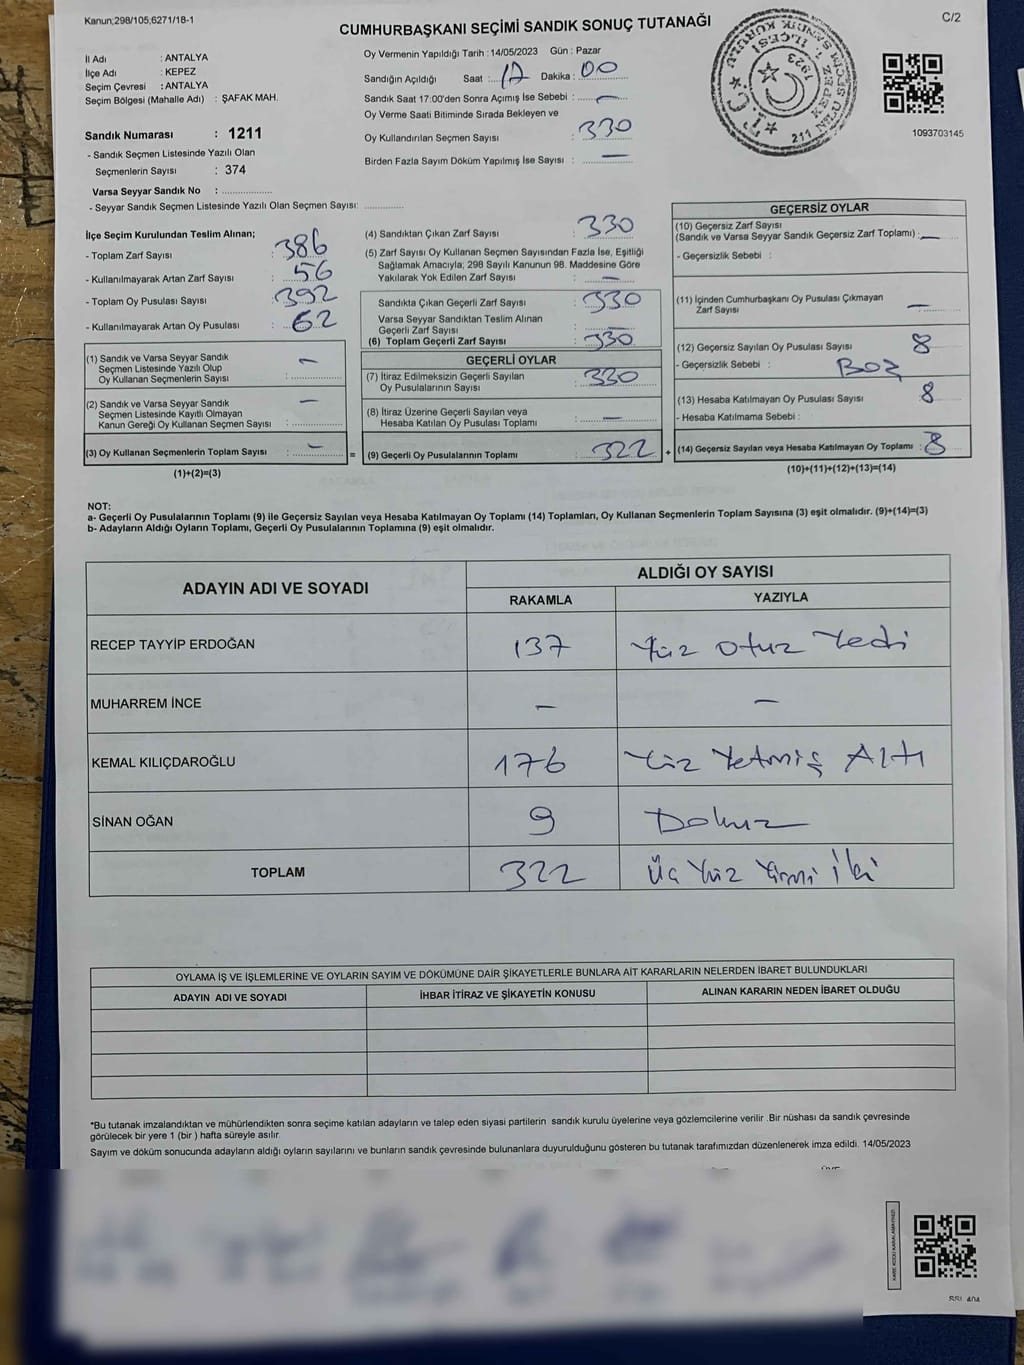 Kanun;298/105,6271/18-1
C/2
CUMHURBAŞKANI SEÇİMİ SANDIK SONUÇ TUTANAĞI
İl Adı : ANTALYA
İlçe Adı : KEPEZ
Seçim Çevresi : ANTALYA
Seçim Bölgesi (Mahalle Adı) : ŞAFAK MAH.
Sandık Numarası : 1211
- Sandık Seçmen Listesinde Yazılı Olan
Seçmenlerin Sayısı : 374
Varsa Seyyar Sandık No : ..................
- Seyyar Sandık Seçmen Listesinde Yazılı Olan Seçmen Sayısı: ..............
Oy Vermenin Yapıldığı Tarih : 14/05/2023 Gün : Pazar
Sandığın Açıldığı Saat : 17 Dakika : 00
Sandık Saat 17:00'den Sonra Açımış İse Sebebi : —
Oy Verme Saati Bitiminde Sırada Bekleyen ve
Oy Kullandırılan Seçmen Sayısı : 330
Birden Fazla Sayım Döküm Yapılmış İse Sayısı : —
T.C.
KEPEZ
1. İLÇE SEÇİM
1923
211 NOLU SEÇİM SANDIK KURULU
1093703145
İlçe Seçim Kurulundan Teslim Alınan;
- Toplam Zarf Sayısı : 386
- Kullanılmayarak Artan Zarf Sayısı : 56
- Toplam Oy Pusulası Sayısı : 392
- Kullanılmayarak Artan Oy Pusulası : 62
(1) Sandık ve Varsa Seyyar Sandık
Seçmen Listesinde Yazılı Olup
Oy Kullanan Seçmenlerin Sayısı : —
(2) Sandık ve Varsa Seyyar Sandık
Seçmen Listesinde Kayıtlı Olmayan
Kanun Gereği Oy Kullanan Seçmen Sayısı : —
(3) Oy Kullanan Seçmenlerin Toplam Sayısı : —
(1)+(2)=(3)
=
(4) Sandıktan Çıkan Zarf Sayısı : 330
(5) Zarf Sayısı Oy Kullanan Seçmen Sayısından Fazla İse, Eşitliği
Sağlamak Amacıyla; 298 Sayılı Kanunun 98. Maddesine Göre
Yakılarak Yok Edilen Zarf Sayısı : —
Sandıkta Çıkan Geçerli Zarf Sayısı : 330
Varsa Seyyar Sandıktan Teslim Alınan
Geçerli Zarf Sayısı :
(6) Toplam Geçerli Zarf Sayısı : 330
GEÇERLİ OYLAR
(7) İtiraz Edilmeksizin Geçerli Sayılan
Oy Pusulalarının Sayısı : 330
(8) İtiraz Üzerine Geçerli Sayılan veya
Hesaba Katılan Oy Pusulası Toplamı : —
(9) Geçerli Oy Pusulalarının Toplamı : 322
+
GEÇERSİZ OYLAR
(10) Geçersiz Zarf Sayısı
(Sandık ve Varsa Seyyar Sandık Geçersiz Zarf Toplamı) : —
- Geçersizlik Sebebi :
(11) İçinden Cumhurbaşkanı Oy Pusulası Çıkmayan
Zarf Sayısı —
(12) Geçersiz Sayılan Oy Pusulası Sayısı 8
- Geçersizlik Sebebi : BOŞ
(13) Hesaba Katılmayan Oy Pusulası Sayısı 8
- Hesaba Katılmama Sebebi :
(14) Geçersiz Sayılan veya Hesaba Katılmayan Oy Toplamı : 8
(10)+(11)+(12)+(13)=(14)
NOT:
a- Geçerli Oy Pusulalarının Toplamı (9) ile Geçersiz Sayılan veya Hesaba Katılmayan Oy Toplamı (14) Toplamları, Oy Kullanan Seçmenlerin Toplam Sayısına (3) eşit olmalıdır. (9)+(14)=(3)
b- Adayların Aldığı Oyların Toplamı, Geçerli Oy Pusulalarının Toplamına (9) eşit olmalıdır.
ADAYIN ADI VE SOYADI ALDIĞI OY SAYISI
RAKAMLA YAZIYLA
RECEP TAYYİP ERDOĞAN 137 Yüz Otuz Yedi
MUHARREM İNCE — —
KEMAL KILIÇDAROĞLU 176 Yüz Yetmiş Altı
SİNAN OĞAN 9 Dokuz
TOPLAM 322 Üç Yüz Yirmi İki
OYLAMA İŞ VE İŞLEMLERİNE VE OYLARIN SAYIM VE DÖKÜMÜNE DAİR ŞİKAYETLERLE BUNLARA AİT KARARLARIN NELERDEN İBARET BULUNDUKLARI
ADAYIN ADI VE SOYADI İHBAR İTİRAZ VE ŞİKAYETİN KONUSU ALINAN KARARIN NEDEN İBARET OLDUĞU
*Bu tutanak imzalandıktan ve mühürlendikten sonra seçime katılan adayların ve talep eden siyasi partilerin sandık kurulu üyelerine veya gözlemcilerine verilir .Bir nüshası da sandık çevresinde
görülecek bir yere 1 (bir ) hafta süreyle asılır.
Sayım ve döküm sonucunda adayların aldığı oyların sayılarını ve bunların sandık çevresinde bulunanlara duyurulduğunu gösteren bu tutanak tarafımızdan düzenlenerek imza edildi. 14/05/2023